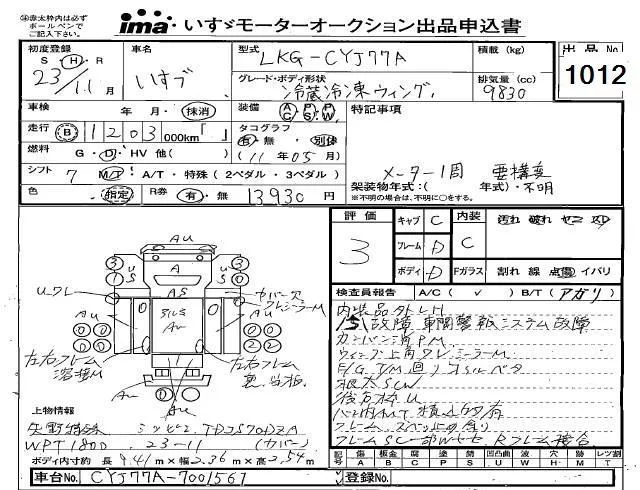 ※赤太枠内は必ず
ボールペンで
ご記入下さい。
ima いすゞモーターオークション出品申込書
初度登録 S・H・R 23/11月
車名 いすゞ
型式 LKG-CYJ77A
積載 (kg)
出品No 1012
グレード・ボディ形状 冷蔵冷凍ウィング
排気量 (cc) 9830
車検 年・月・抹消
装備 AC PS PW
特記事項
走行 B 1203 000km「 」
タコグラフ 有・無・別体 (11年05月)
燃料 G・D・HV 他( )
メーター1周 要構変
シフト 7 M/T・A/T・特殊(2ペダル・3ペダル)
架装物年式:( 年式)・不明
※不明の場合は、不明に○をする。
色 指定
R券 有・無 13930円
評価 3
キャブ C
内装 C
汚れ 破れ ヤニ スレ
フレーム D
ボディ D
Fガラス 割れ 線 点傷 イバリ
検査員報告 A/C( ✓ ) B/T(アガリ)
内装品外レH
故障 車間警報システム故障
カンバン消PM
ウィング上角ワレシーラーM
E/G T/M回リオイルベタ
根太SCW
後方枠U
フレームSC一部WセセRフレーム接合
AU
A
AS
3 1 U S
U S 3 1
Uワレ
カバー穴
ワレシーラーM
AU
SUS
AU
0 0 0 0
0 2 0 0
左右フレーム
溶接M
左右フレーム
裏当板
AU
AU
上物情報
矢野特殊 ミツビシ TDJS70DZA
WPT180D 23-11 (カバー)
ボディ内寸約 長 9.41m×幅 2.36m×高 2.54m
記号 傷A 板金B 腐C 塗P 錆S 凹U 波W 穴H 跡M レツ割T
車台No. CYJ77A-7001567
登録No.